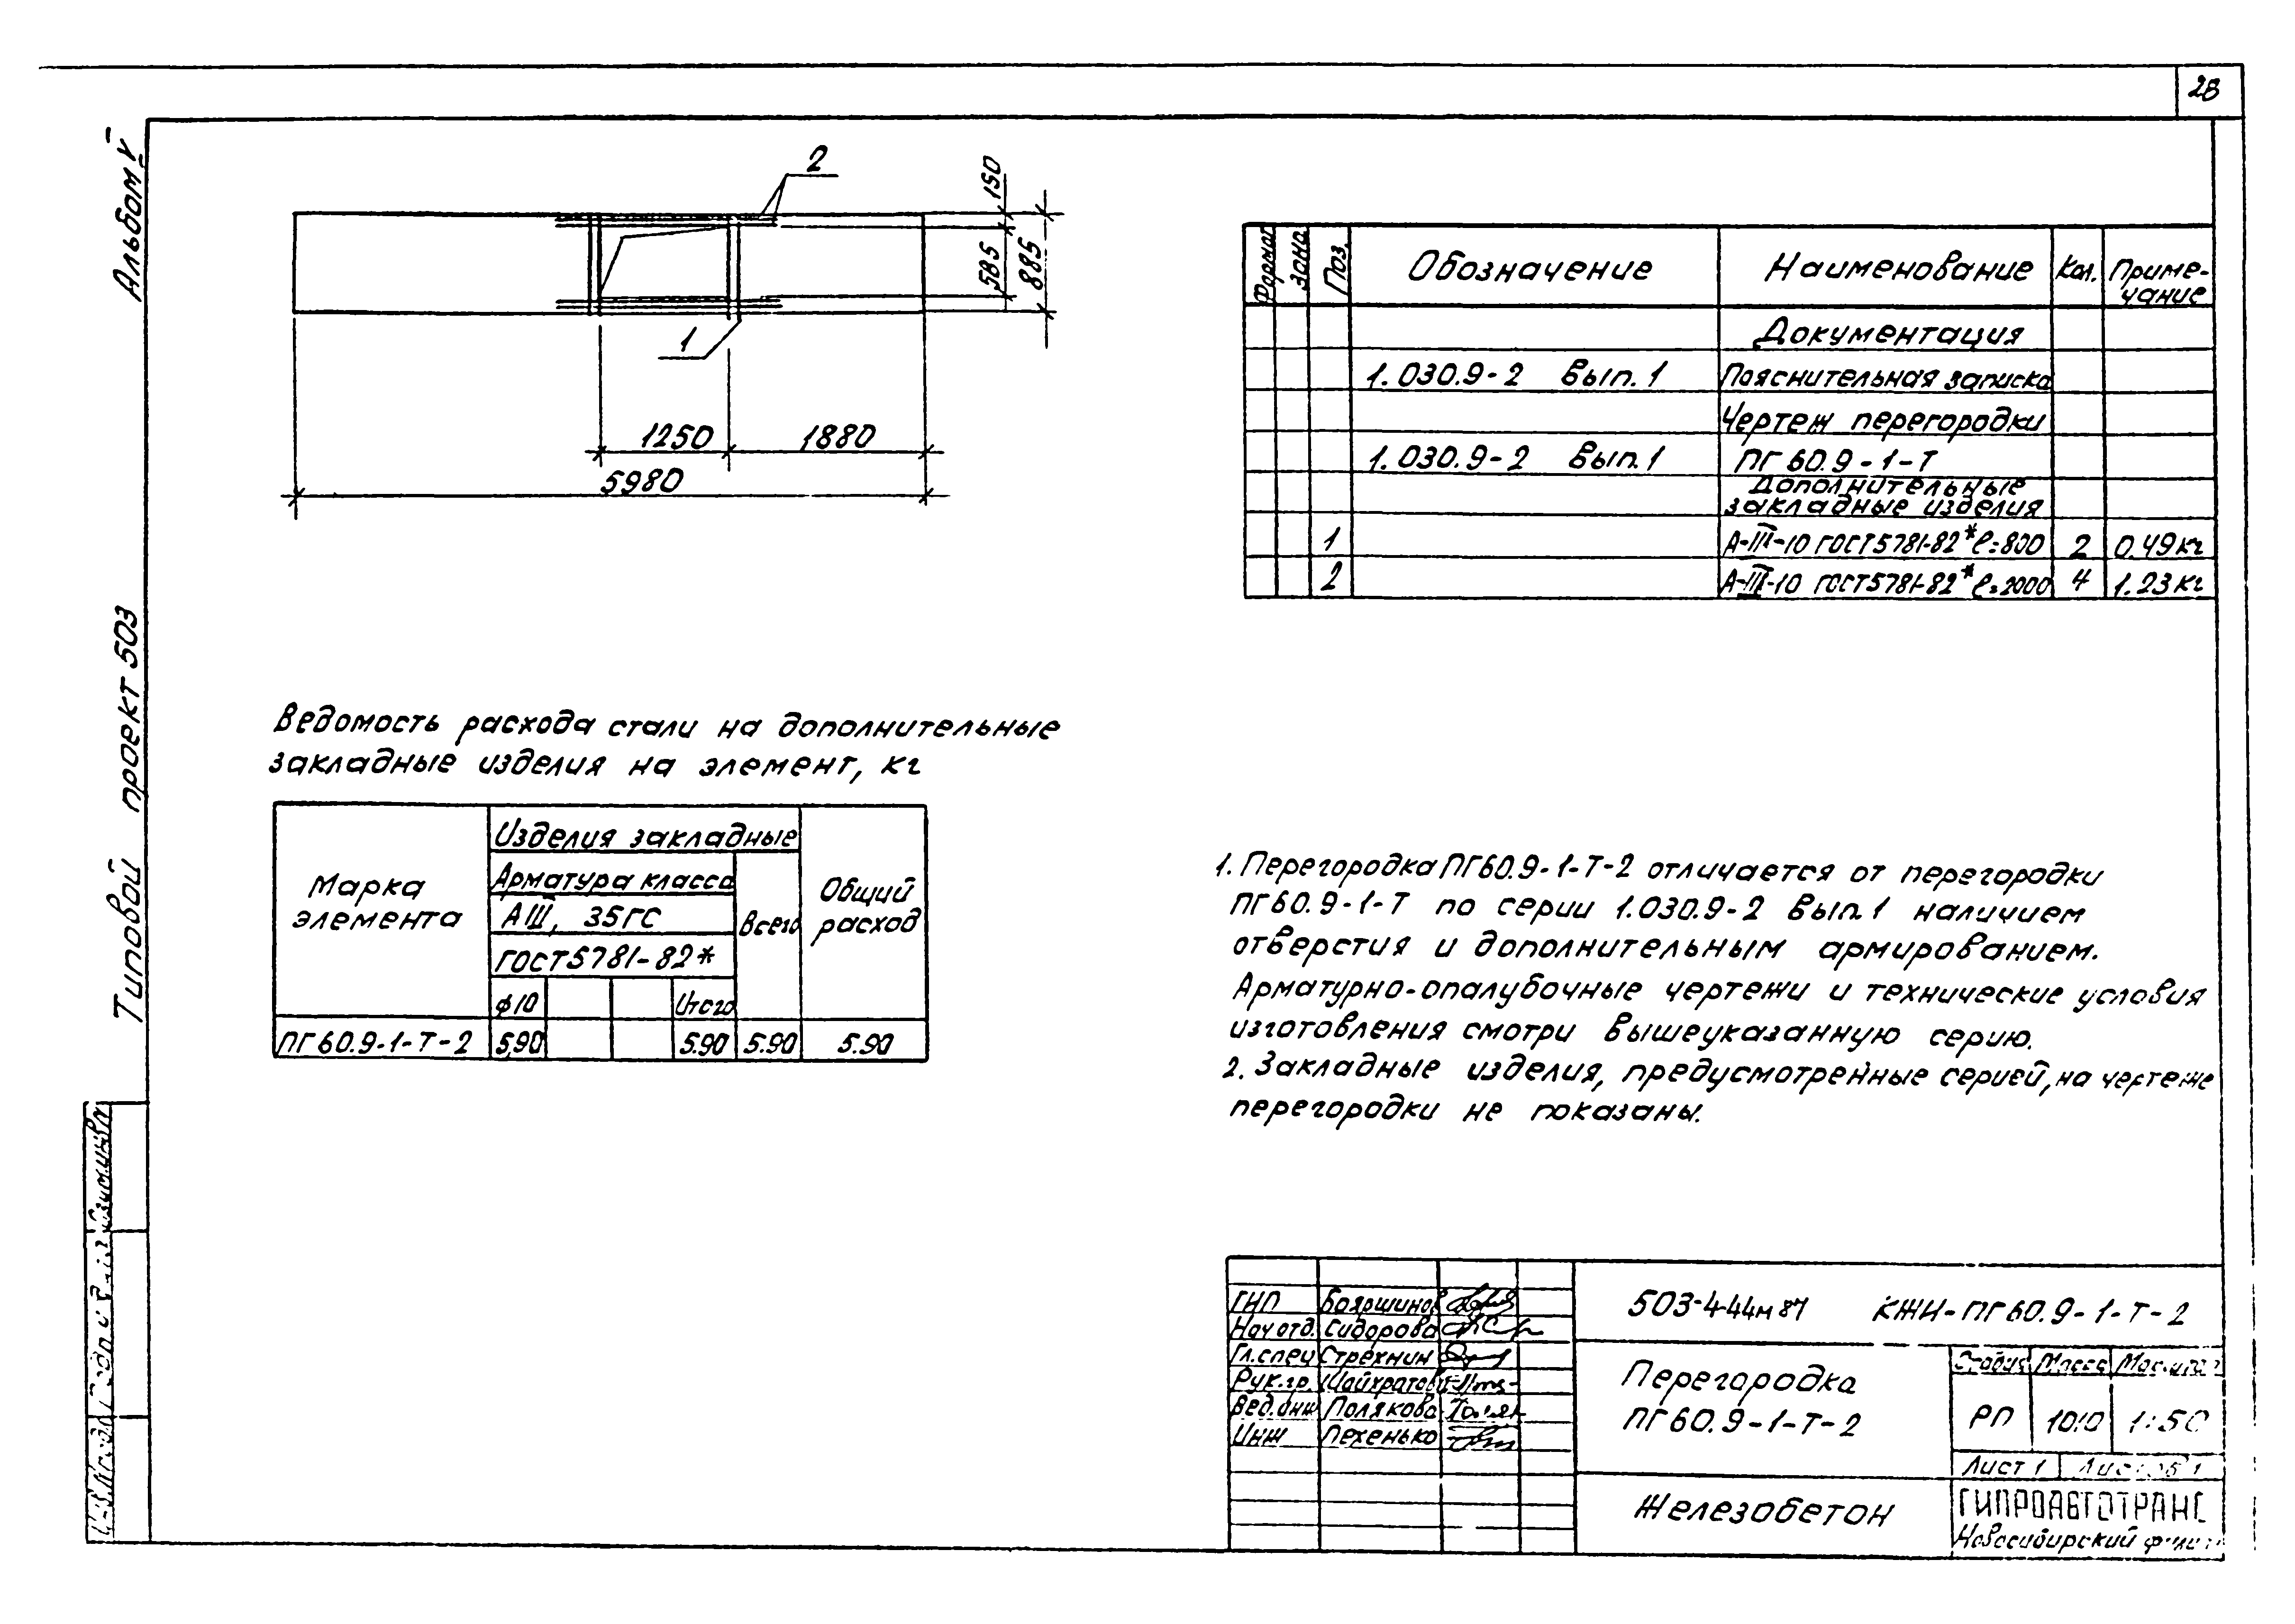 28
Альбом V
Типовой проект 503
2
150
585
885
1
1250
1880
5980
Формат
Зона
Поз.
Обозначение
Наименование
Кол.
Приме-
чание
Документация
1.030.9-2 Вып.1
Пояснительная записка
Чертеж перегородки
1.030.9-2 Вып.1
ПГ 60.9-1-Т
Дополнительные
закладные изделия
1
А-III-10 ГОСТ5781-82* ℓ=800
2
0.49кг
2
А-III-10 ГОСТ5781-82* ℓ=2000
4
1.23кг
Ведомость расхода стали на дополнительные
закладные изделия на элемент, кг
Марка
элемента
Изделия закладные
Арматура класса
АIII, 35ГС
ГОСТ5781-82*
ф10
Итого
Всего
Общий
расход
ПГ60.9-1-Т-2
5,90
5.90
5.90
5.90
1. Перегородка ПГ60.9-1-Т-2 отличается от перегородки
ПГ60.9-1-Т по серии 1.030.9-2 Вып.1 наличием
отверстия и дополнительным армированием.
Арматурно-опалубочные чертежи и технические условия
изготовления смотри вышеуказанную серию.
2. Закладные изделия, предусмотренные серией, на чертеже
перегородки не показаны.
ГИП Бояршинов
Нач отд. Сидорова
Гл.спец Стрехнин
Рук.гр.
Вед.инж Полякова
Инж Пехенько
503-4-44м87 КЖИ-ПГ60.9-1-Т-2
Перегородка
ПГ60.9-1-Т-2
Стадия
Масса
Масштаб
РП
1010
1:50
Лист 1
Листов 1
Железобетон
ГИПРОАВТОТРАНС
Новосибирский